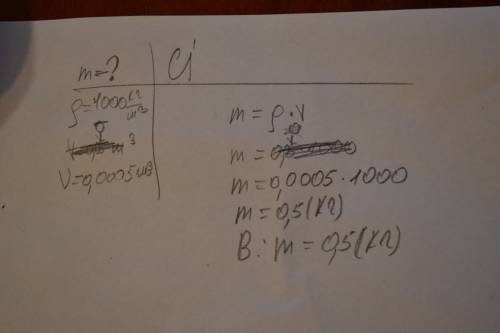 m=? Сі
ρ=1000 кг/м³
V=0,0005 м3
m = ρ·V
m =
m=0,0005·1000
m=0,5(кг)
В: m=0,5(кг)